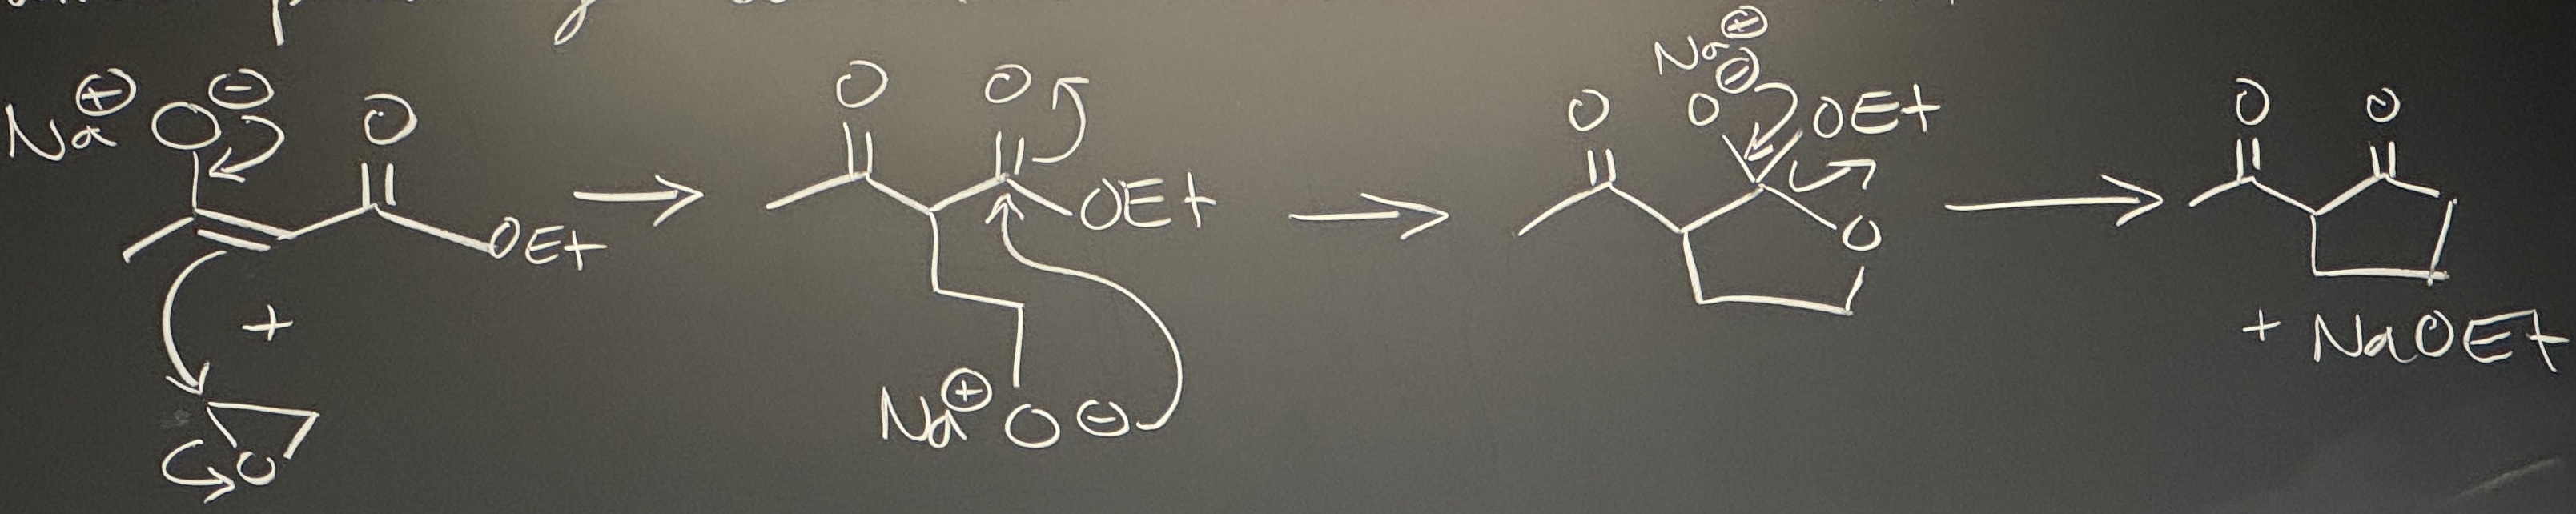 Na⊕ O⊖ O OEt
+
O
O O OEt
Na⊕ O⊖
O Na⊕ ⊖ O OEt O
O O
+ NaOEt